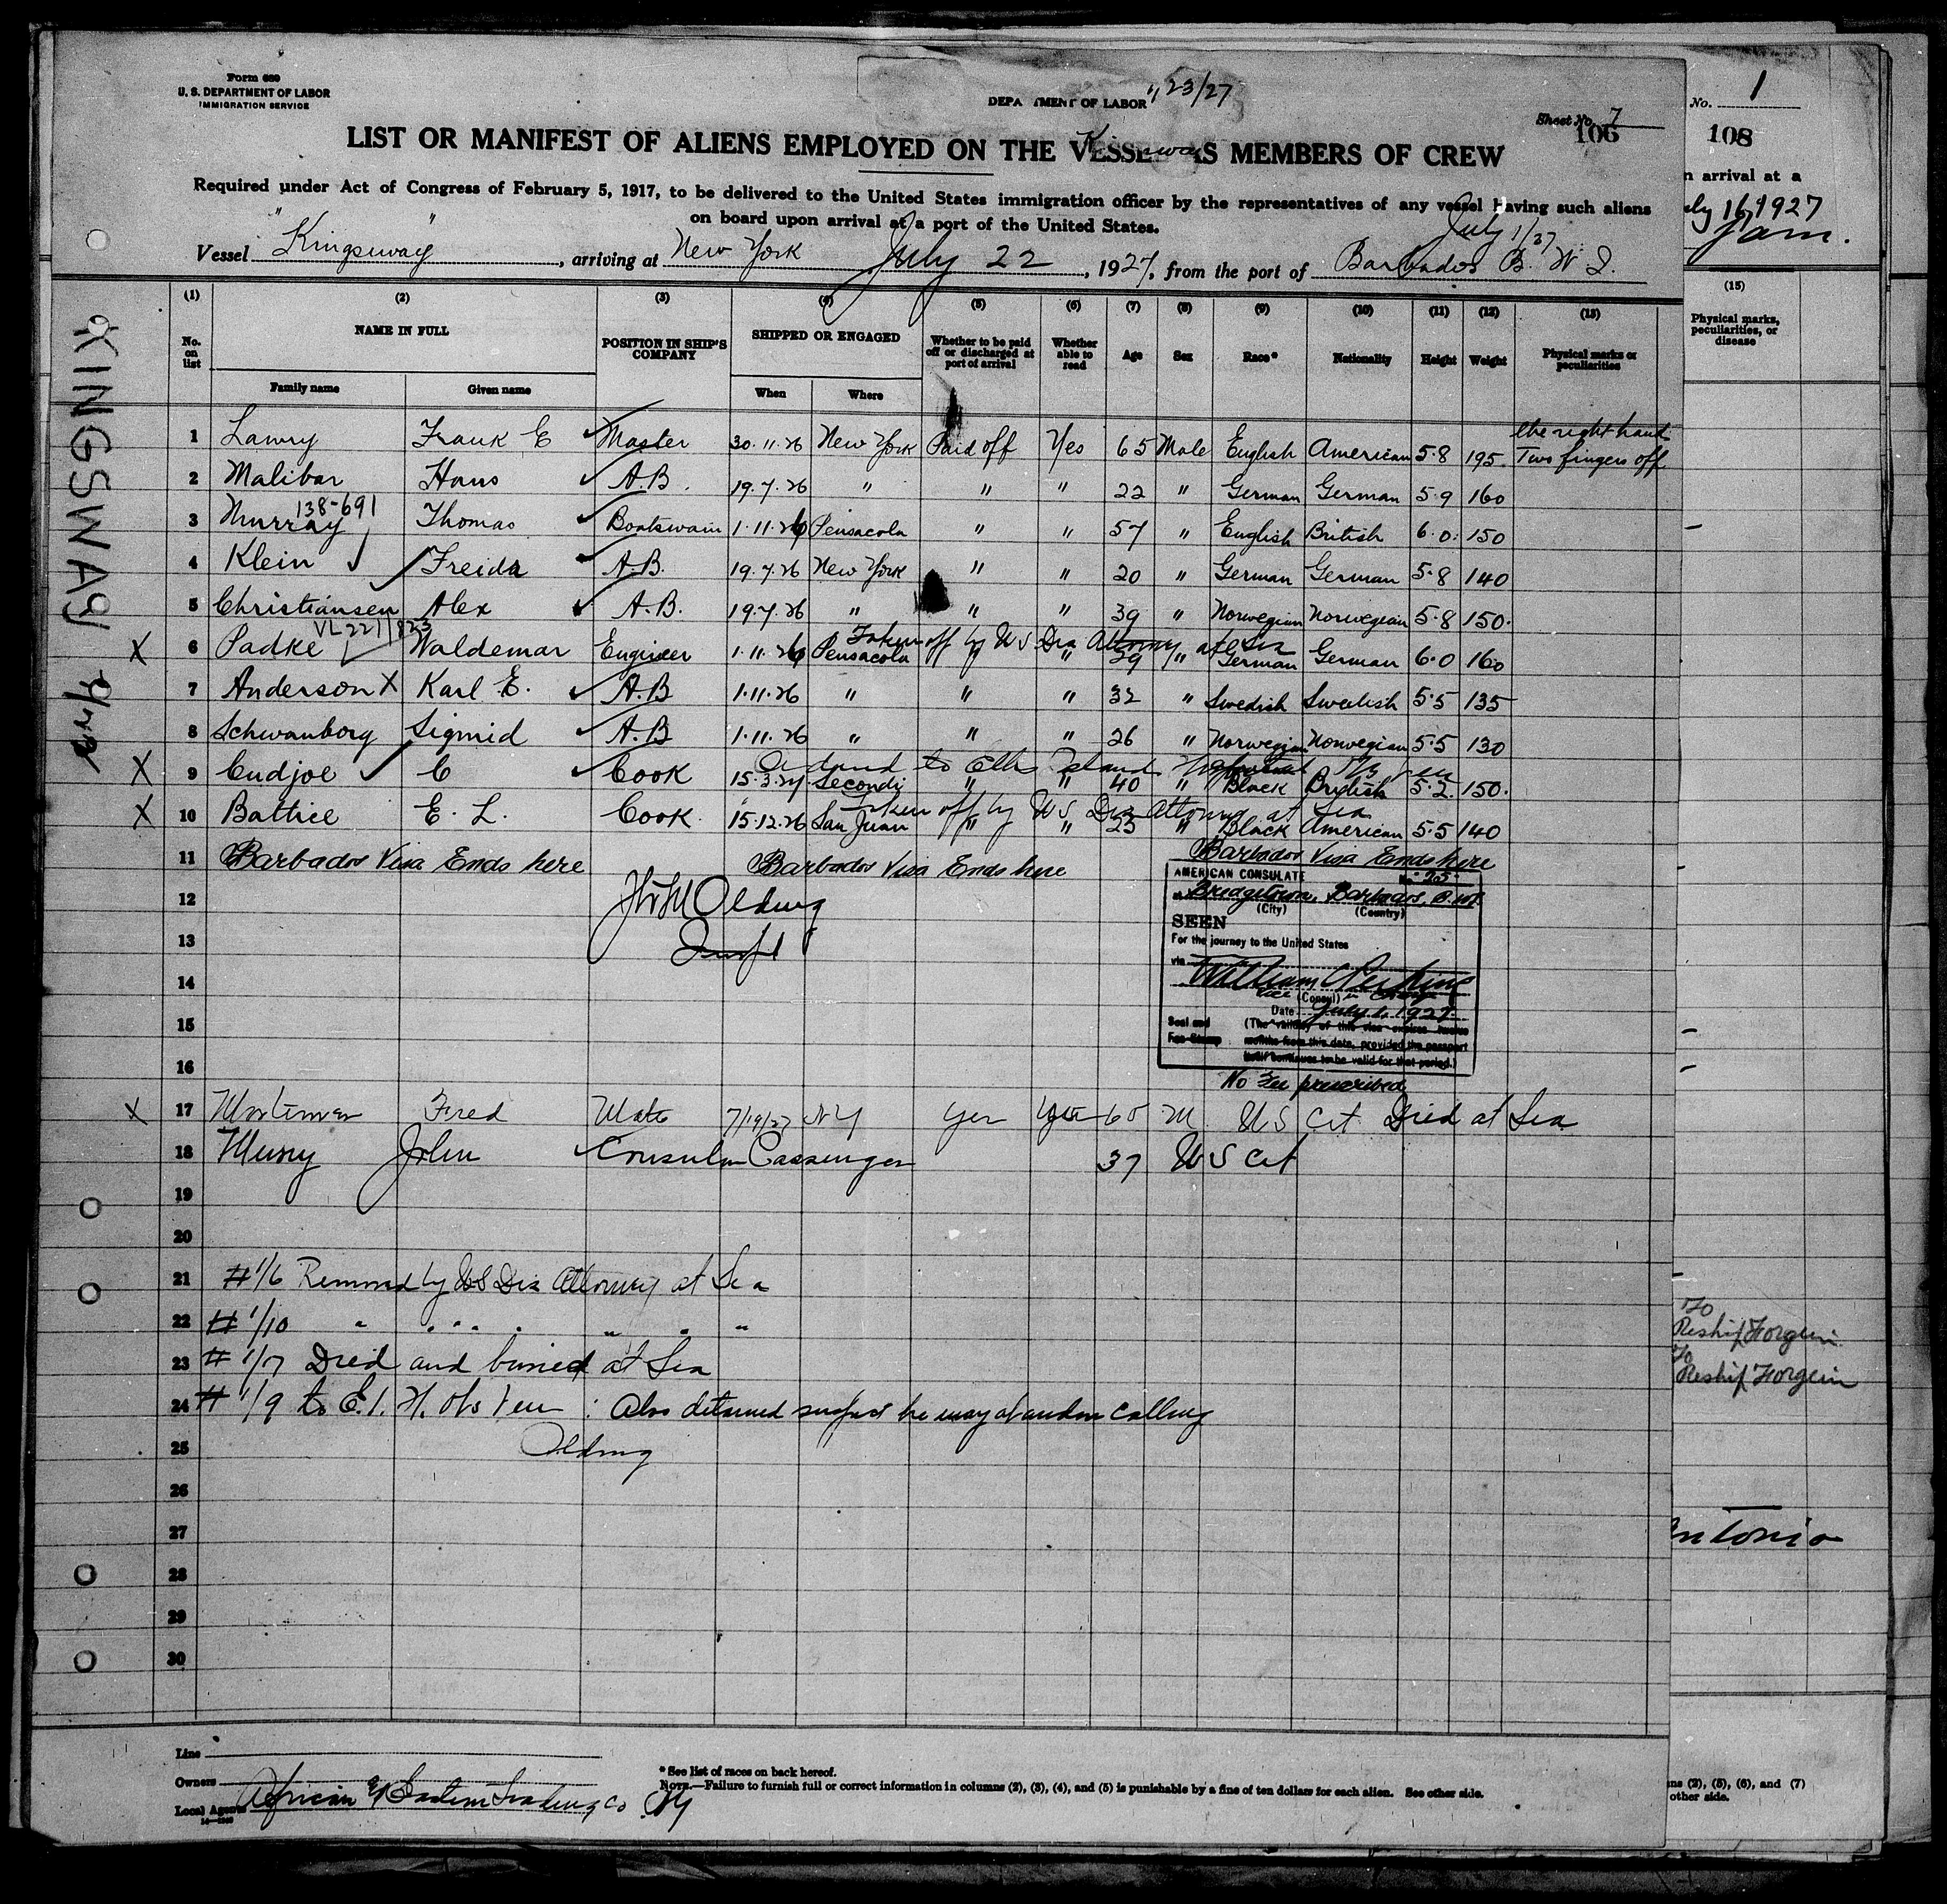 Form 689
U. S. DEPARTMENT OF LABOR
IMMIGRATION SERVICE
DEPARTMENT OF LABOR
23/27
Sheet No. 7
106
LIST OR MANIFEST OF ALIENS EMPLOYED ON THE VESSEL AS MEMBERS OF CREW
Required under Act of Congress of February 5, 1917, to be delivered to the United States immigration officer by the representatives of any vessel having such aliens
on board upon arrival at a port of the United States.
July 1/27
Vessel "Kingsway", arriving at New York July 22, 1927, from the port of Barbados B. W. I.
(1) (2) (3) (4) (5) (6) (7) (8) (9) (10) (11) (12) (13)
No. on list NAME IN FULL POSITION IN SHIP'S COMPANY SHIPPED OR ENGAGED Whether to be paid off or discharged at port of arrival Whether able to read Age Sex Race* Nationality Height Weight Physical marks or peculiarities
Family name Given name When Where
the right hand
1 Lawry Frank E Master 30.11.26 New York Paid off Yes 65 Male English American 5.8 195. Two fingers off
2 Malibar Hans A.B. 19.7.26 " " " 22 " German German 5.9 160
138-691
3 Murray Thomas Boatswain 1.11.26 Pensacola " " 57 " English British 6.0 150
4 Klein Freida A.B. 19.7.26 New York " " 20 " German German 5.8 140
5 Christiansen Alex A.B. 19.7.26 " " " 39 " Norwegian Norwegian 5.8 150.
VL 221/823
Taken off by US Dis Attorney at Sea
X 6 Padke Waldemar Engineer 1.11.26 Pensacola " " 29 " German German 6.0 160
7 Anderson X Karl E. A.B 1.11.26 " " " 32 " Swedish Swedish 5.5 135
8 Schwanborg Sigmid A.B 1.11.26 " " " 26 " Norwegian Norwegian 5.5 130
to Ellis Island Hospital
X 9 Cudjoe C Cook 15.3.27 Secondi " " 40 " Black British 5.2 150.
Taken off by US Dis Attorney at Sea
X 10 Battice E. L. Cook 15.12.26 San Juan " " 23 " Black American 5.5 140
11 Barbados Visa Ends here Barbados Visa Ends here Barbados Visa Ends here
12 Olding
13
14
15
16
AMERICAN CONSULATE No. 25
at Bridgetown, Barbados, B.W.I.
(City) (Country)
SEEN
For the journey to the United States
via
William Perkins
Vice (Consul) in Charge
Date July 1, 1927
Seal and Fee Stamp (The validity of this visa expires twelve
months from this date, provided the passport
itself continues to be valid for that period.)
No Fee prescribed
X 17 Mortimer Fred Mate 7/19/27 NY Yes Yes 65 M US Cit Died at Sea
18 Murry John Consular Passenger 37 US Cit
19
20
21 # 1/6 Removed by US Dis Attorney at Sea
22 # 1/10 " " " " " " " "
23 # 1/17 Died and buried at Sea
24 # 1/9 to E. I. H. Obs Ven : Also detained suspect he may abandon calling
25 Olding
26
27
28
29
30
Line
Owners
Local Agents African & Eastern Trading Co NY
*See list of races on back hereof.
NOTE.—Failure to furnish full or correct information in columns (2), (3), (4), and (5) is punishable by a fine of ten dollars for each alien. See other side.
KINGSWAY
No. 1
108
n arrival at a
ly 16, 1927
Jam.
(15)
Physical marks, peculiarities, or disease
To
Reship Forgein
To
Reship Forgein
ntonio
ns (2), (5), (6), and (7)
other side.